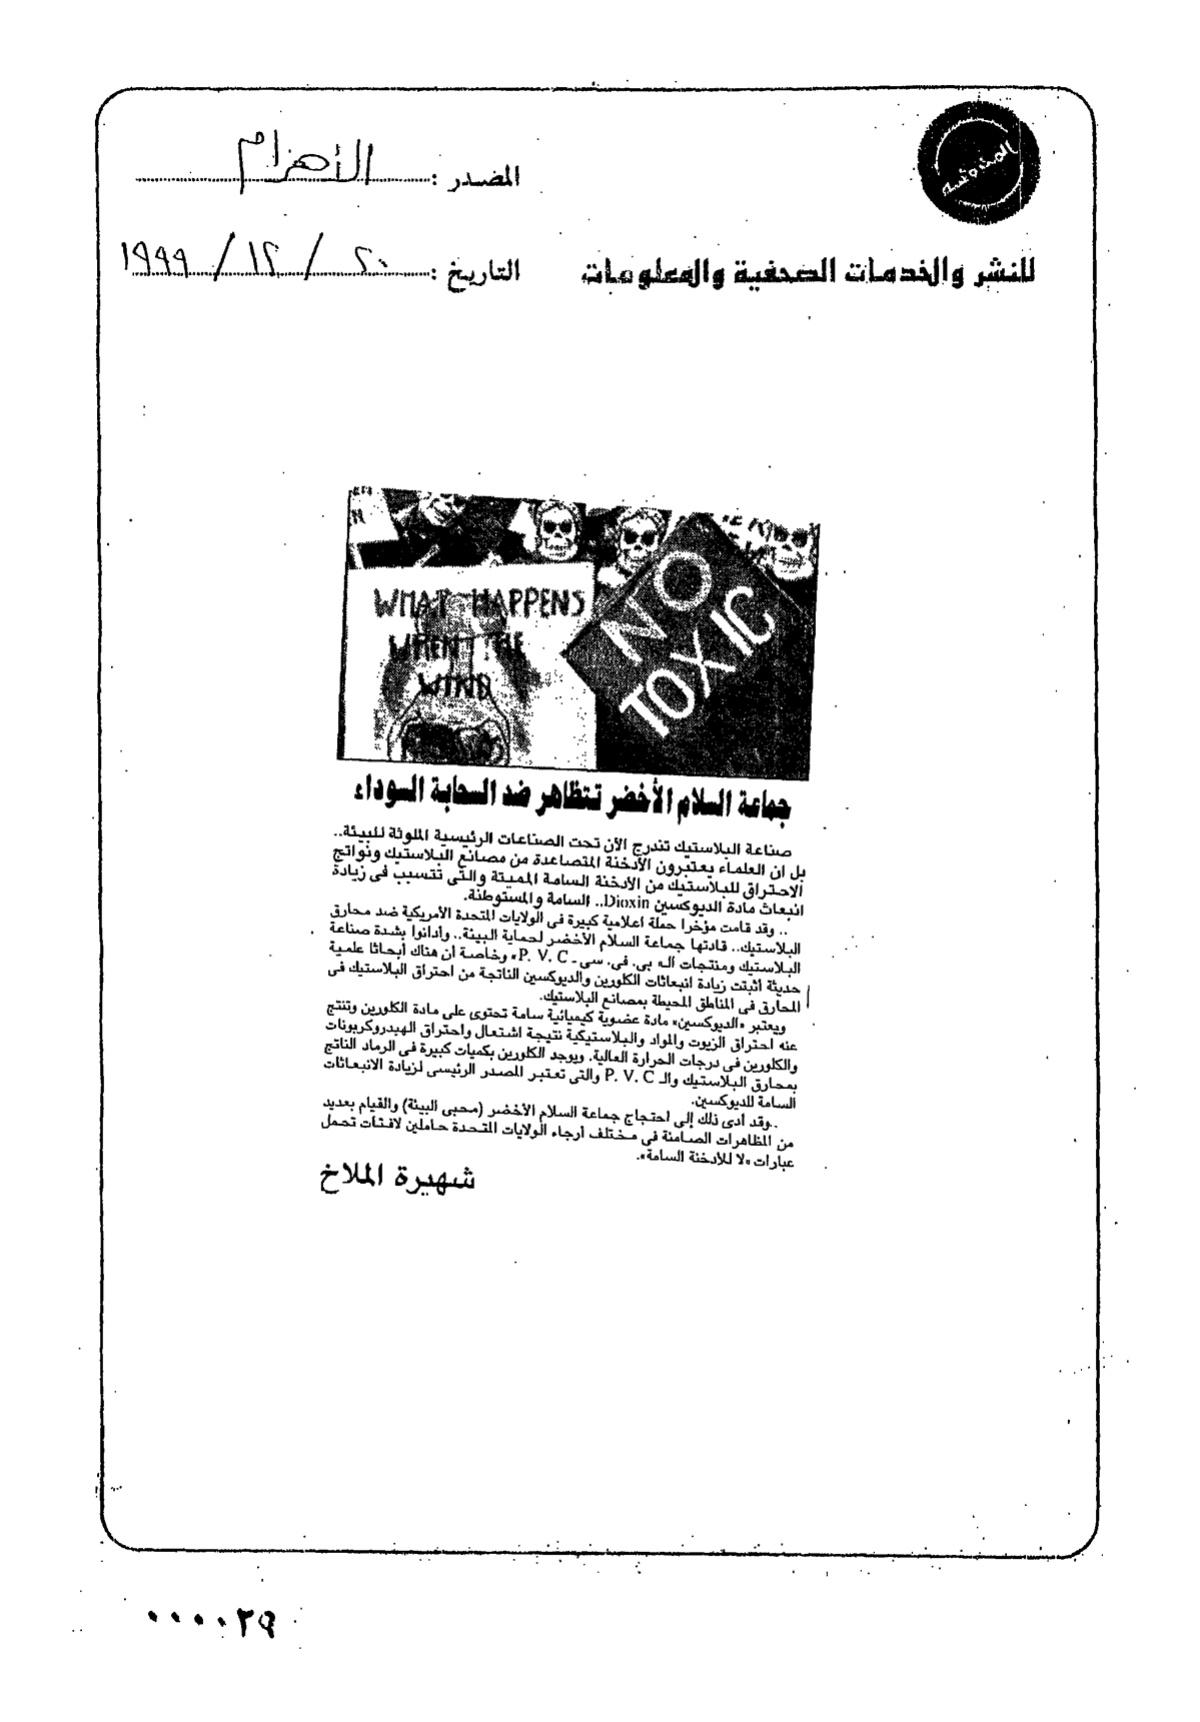 المصدر : الأهرام
للنشر والخدمات الصحفية والمعلومات
التاريخ : ٢٠ / ١٢ / ١٩٩٩
WHAT HAPPENS
WHEN THE
WIND
NO
TOXIC
جماعة السلام الأخضر تتظاهر ضد السحابة السوداء
صناعة البلاستيك تندرج الآن تحت الصناعات الرئيسية الملوثة للبيئة..
بل ان العلماء يعتبرون الأدخنة المتصاعدة من مصانع البلاستيك ونواتج
الاحتراق للبلاستيك من الأدخنة السامة المميتة والتى تتسبب فى زيادة
انبعاث مادة الديوكسين Dioxin.. السامة والمستوطنة.
.. وقد قامت مؤخرا حملة اعلامية كبيرة فى الولايات المتحدة الأمريكية ضد محارق
البلاستيك.. قادتها جماعة السلام الأخضر لحماية البيئة.. وأدانوا بشدة صناعة
البلاستيك ومنتجات الـ« بى. فى. سى - P. V. C» وخاصة أن هناك أبحاثا علمية
حديثة اثبتت زيادة انبعاثات الكلورين والديوكسين الناتجة من احتراق البلاستيك فى
المحارق فى المناطق المحيطة بمصانع البلاستيك.
ويعتبر «الديوكسين» مادة عضوية كيميائية سامة تحتوى على مادة الكلورين وتنتج
عنه احتراق الزيوت والمواد والبلاستيكية نتيجة اشتعال واحتراق الهيدروكربونات
والكلورين فى درجات الحرارة العالية. ويوجد الكلورين بكميات كبيرة فى الرماد الناتج
بمحارق البلاستيك والـ P. V. C والتى تعتبر المصدر الرئيسى لزيادة الانبعاثات
السامة للديوكسين.
.وقد أدى ذلك إلى احتجاج جماعة السلام الأخضر (محبى البيئة) والقيام بعديد
من المظاهرات الصامتة فى مختلف أرجاء الولايات المتحدة حاملين لافتات تحمل
عبارات «لا للأدخنة السامة».
شهيرة الملاخ
٠٠٠٠٢٩